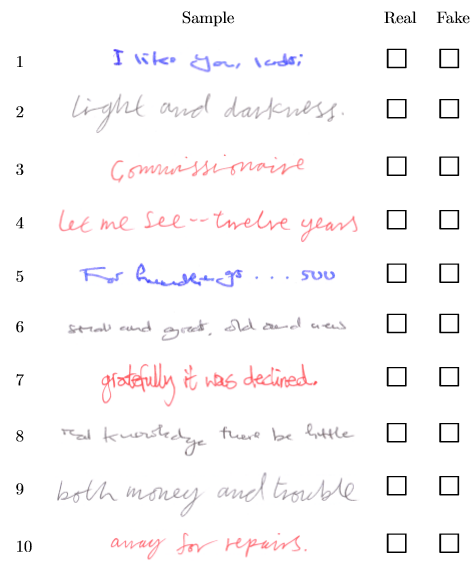 Sample Real Fake
1 I like you, lads;
2 Light and darkness.
3 Commissionaire
4 let me see -- twelve years
5 For ... 500
6 small and great, old and new
7 gratefully it was declined.
8 real knowledge there be little
9 both money and trouble
10 away for repairs.